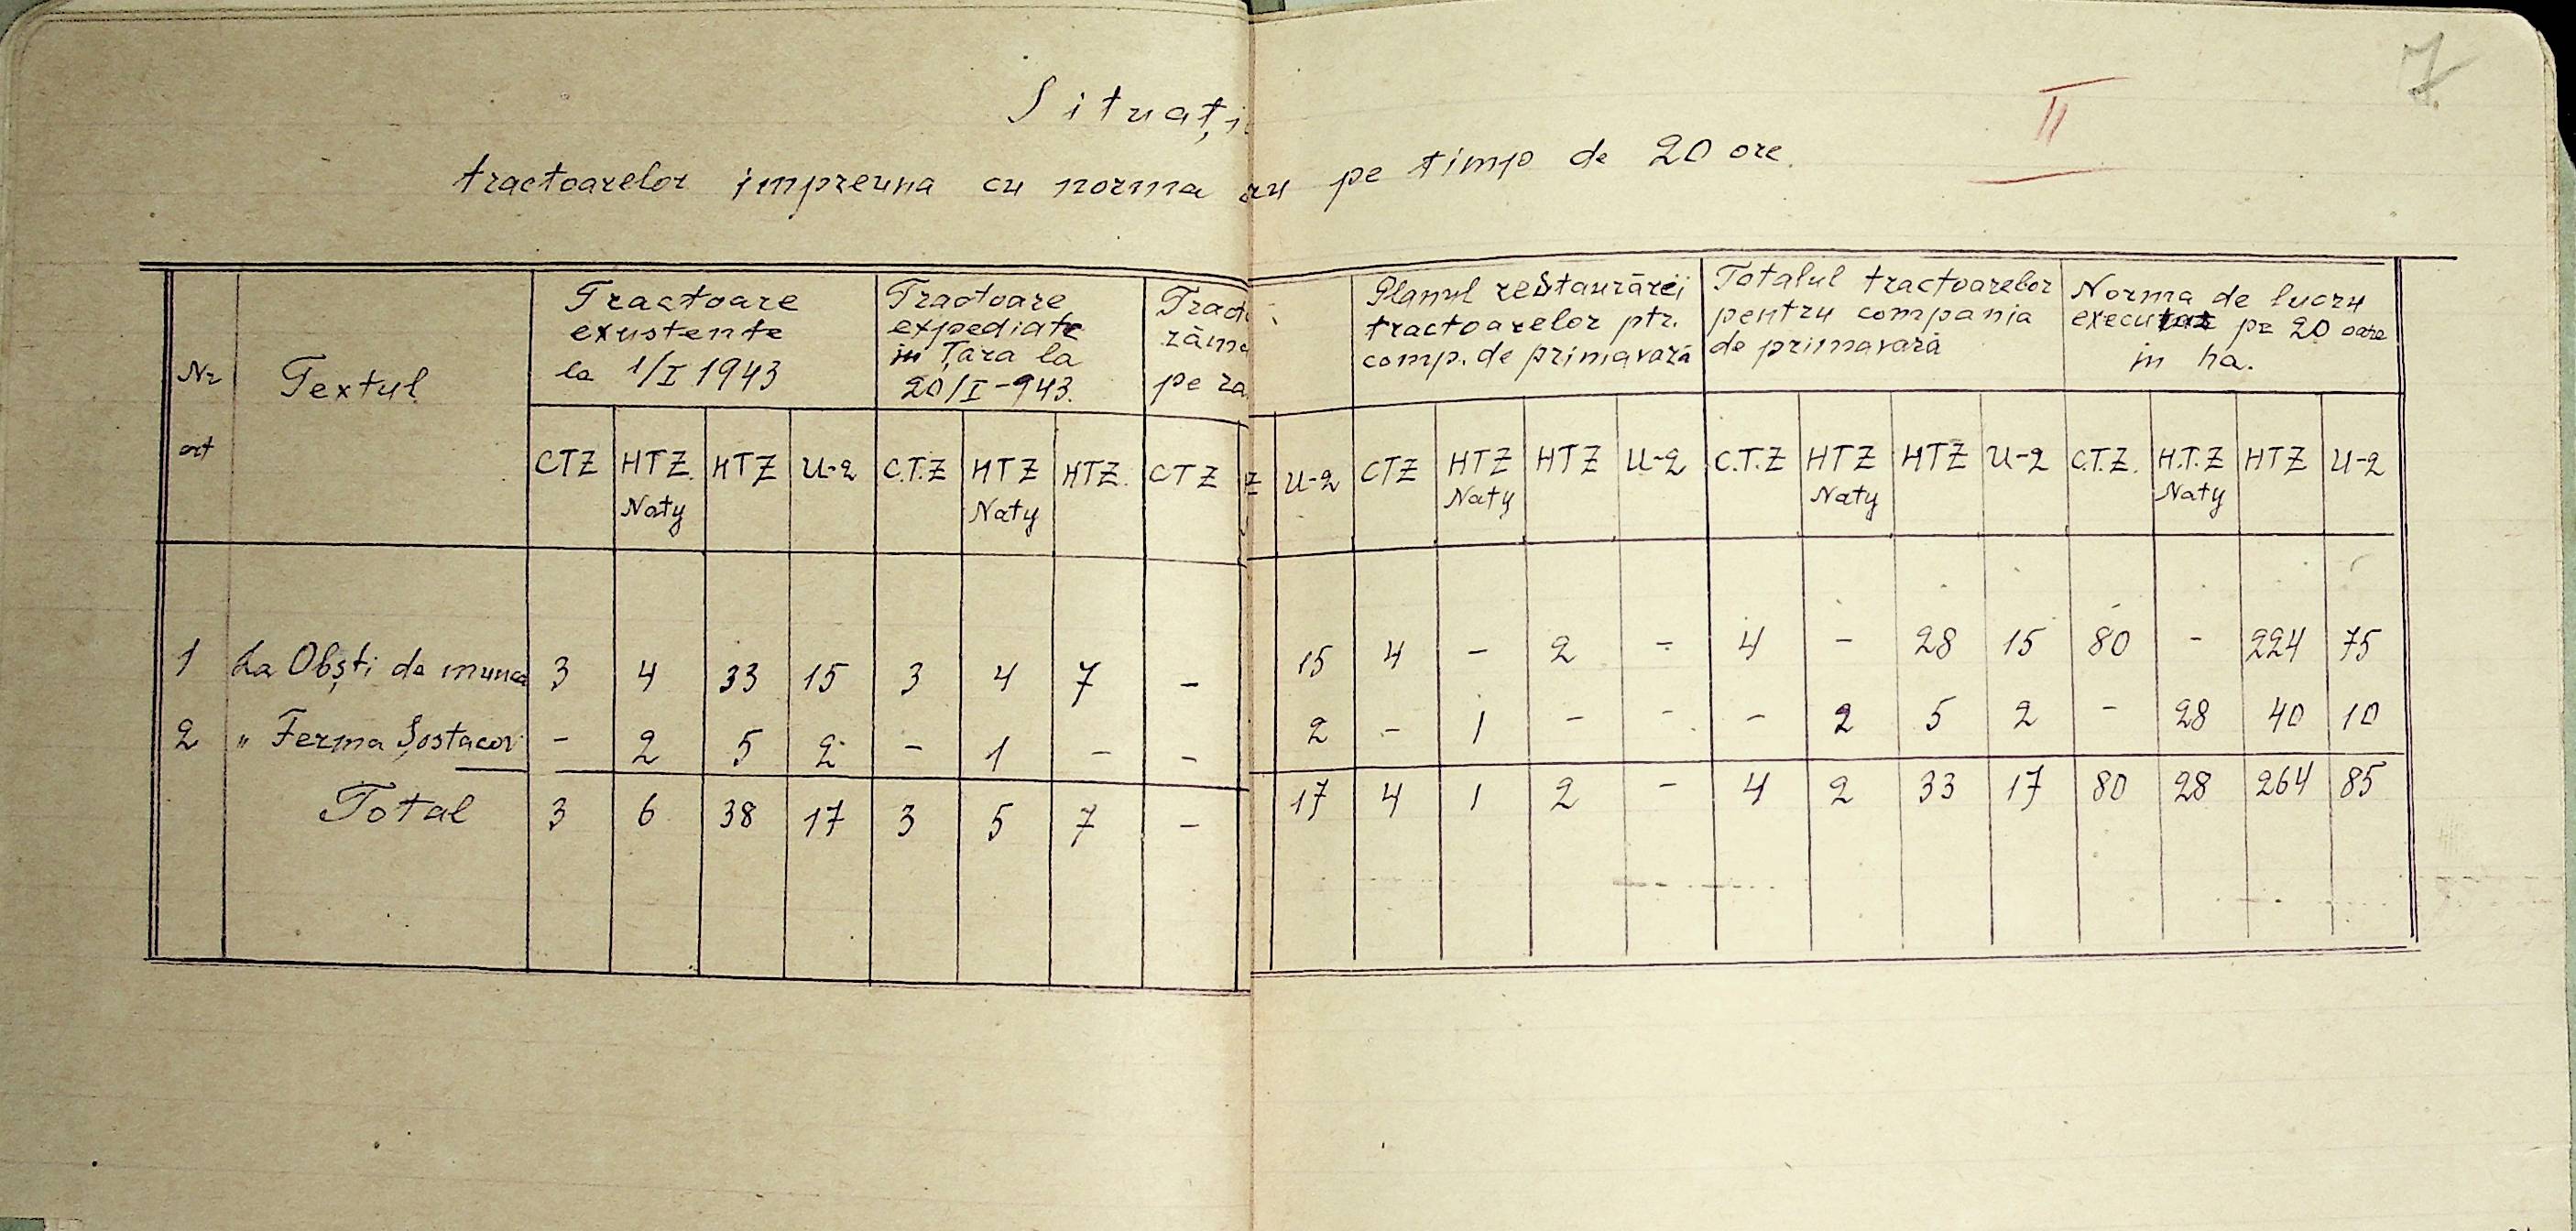 7
II
Situați
tractoarelor impreuna cu norma ru pe timp de 20 ore.
Nr
ort
Textul
Tractoare
existente
la 1/I 1943
Tractoare
expediate
in Țara la
20/I-943.
Tract
răma
pe ra
Planul restaurărei
tractoarelor ptr.
comp. de primavară
Totalul tractoarelor
pentru compania
de primavară
Norma de lucru
executat pe 20 oare
in ha.
CTZ HTZ Naty HTZ U-2 C.T.Z HTZ Naty HTZ. CTZ Z U-2 CTZ HTZ Naty HTZ U-2 C.T.Z HTZ Naty HTZ U-2 C.T.Z. H.T.Z Naty HTZ U-2
1 La Obști de munca 3 4 33 15 3 4 7 - 15 4 - 2 - 4 - 28 15 80 - 224 75
2 " Ferma Șostacov - 2 5 2 - 1 - - 2 - 1 - - - 2 5 2 - 28 40 10
Total 3 6 38 17 3 5 7 - 17 4 1 2 - 4 2 33 17 80 28 264 85